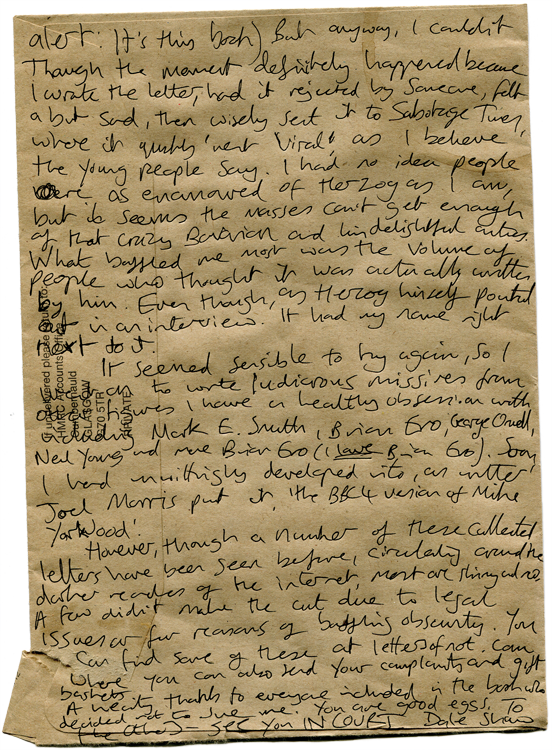 alert: It's this book) But anyway, I couldn't
Though the moment definitely happened because
I wrote the letter, had it rejected by someone, felt
a bit sad, then wisely sent it to Sabotage Times,
where it quickly 'went viral' as I believe
the young people say. I had no idea people
were as enamoured of Herzog as I am,
but it seems the masses can't get enough
of that crazy Bavarian and his delightful antics.
What baffled me most was the volume of
people who thought it was actually written
by him. Even though, as Herzog himself pointed
out in an interview. It had my name right
next to it.
It seemed sensible to try again, so I
to write ludicrous missives from
I have a healthy obsession with
Mark E. Smith, Brian Eno, George Orwell,
Neil Young and more Brian Eno (I love Brian Eno). Soon
I had unwittingly developed into, as writer
Joel Morris put it, 'the BBC4 version of Mike
Yarwood'.
However, though a number of these collected
letters have been seen before, circulating around the
darker reaches of the internet, most are shiny and new.
A few didn't make the cut due to legal
issues or for reasons of baffling obscurity. You
can find some of these at lettersofnot.com
where you can also send your complaints and gift
baskets.
A hearty thanks to everyone included in the book who
decided not to sue me. You are good eggs. To
the others - SEE YOU IN COURT Dale Shaw
If undelivered please return to:
HMRC Accounts Office
Cumbernauld
GLASGOW
G70 5TR
PRIVATE